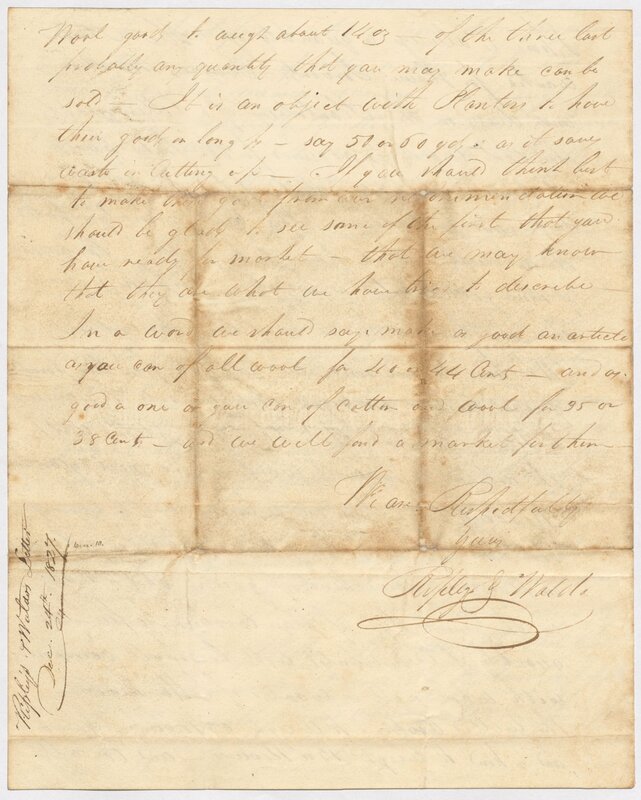 Wool goods to weigh about 14 oz — of the three last
probally any quantity that you may make can be
sold — It is an object with Planters to have
their goods in long ps — say 50 or 60 yds: as it saves
waste in Cutting up — If you should think best
to make this goods from our recommendation we
should be glad to see some of the first that you
have ready for market — that we may know
that they are what we have tried to describe —
In a word we should say: make as good an article
as you can of all wool for 40 or 44 Cents — and as
good a one as you can of Cotton and wool for 35 or
38 Cents — and we will find a market for them —
We are Respectfully
Yours
Ripleys & Waldo
Ripleys & Letter
Dec. 24th 1827.